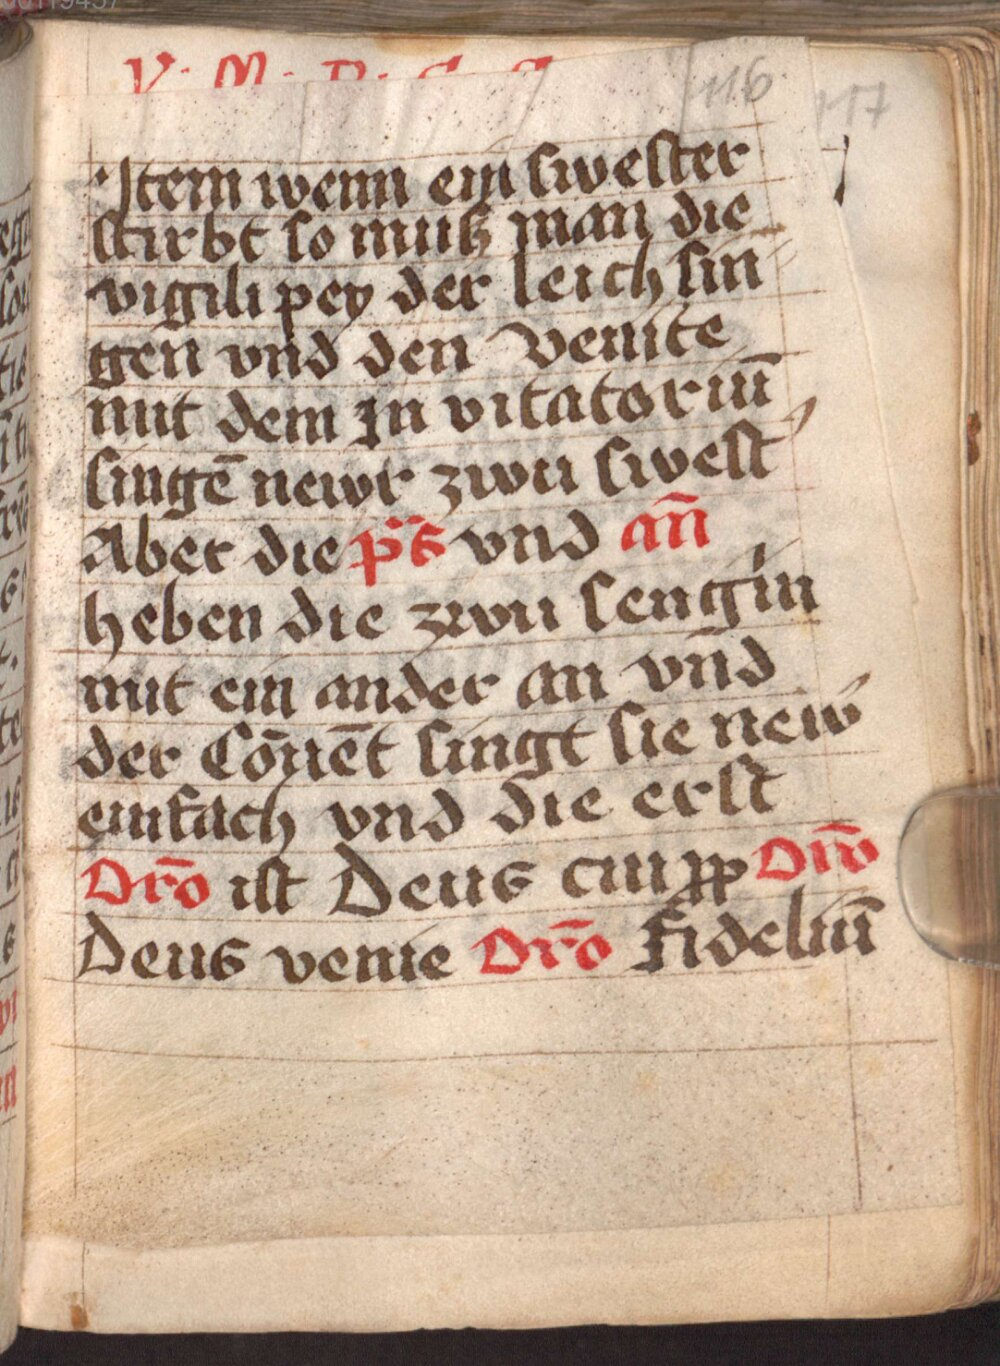 116
117
Item wenn ein swester
stirbt so muß man die
vigili pey der leich sin
gen vnd den Venite
mit dem In vitatoriū
singē newr zwu swest'
Aber die p̄s vnd an̄
heben die zwu sengin̄
mit ein ander an vn̄d
der Cōuēt singt sie new'
einfach vnd die erst
Orō ist Deus cui ꝓp Oīō
Deus venie Orō Fideliū